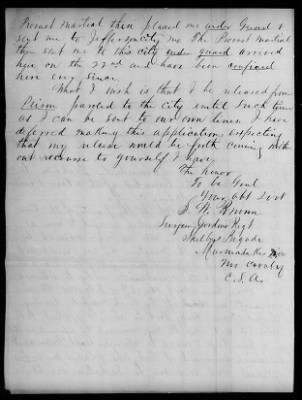 Provost Martial there placed me under Guard &
sent me to Jefferson City, the Provost Martial
then sent me to this city under guard arrived
here on the 22nd and have been confined
here ever since.
What I wish is that I be released from
Prison paroled to the city untill such time
as I can be sent to our own lines I have
deferred making this application expecting
that my release would be forth coming with
out recourse to yourself I have
The honor
To be Genl
Your obt Svt
Surgeon Gordons Regt
Shelbys Brigade
Marmadukes Div
Mo Cavalry
C.S.A.